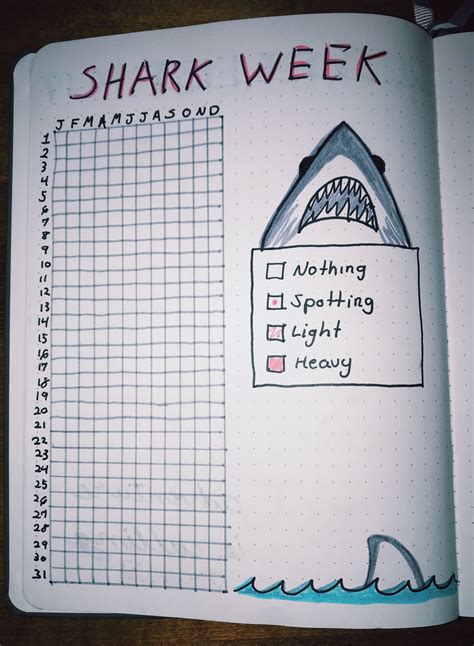 SHARK WEEK
J F M A M J J A S O N D
1
2
3
4
5
6
7
8
9
10
11
12
13
14
15
16
17
18
19
20
21
22
23
24
25
26
27
28
29
30
31
Nothing
Spotting
Light
Heavy